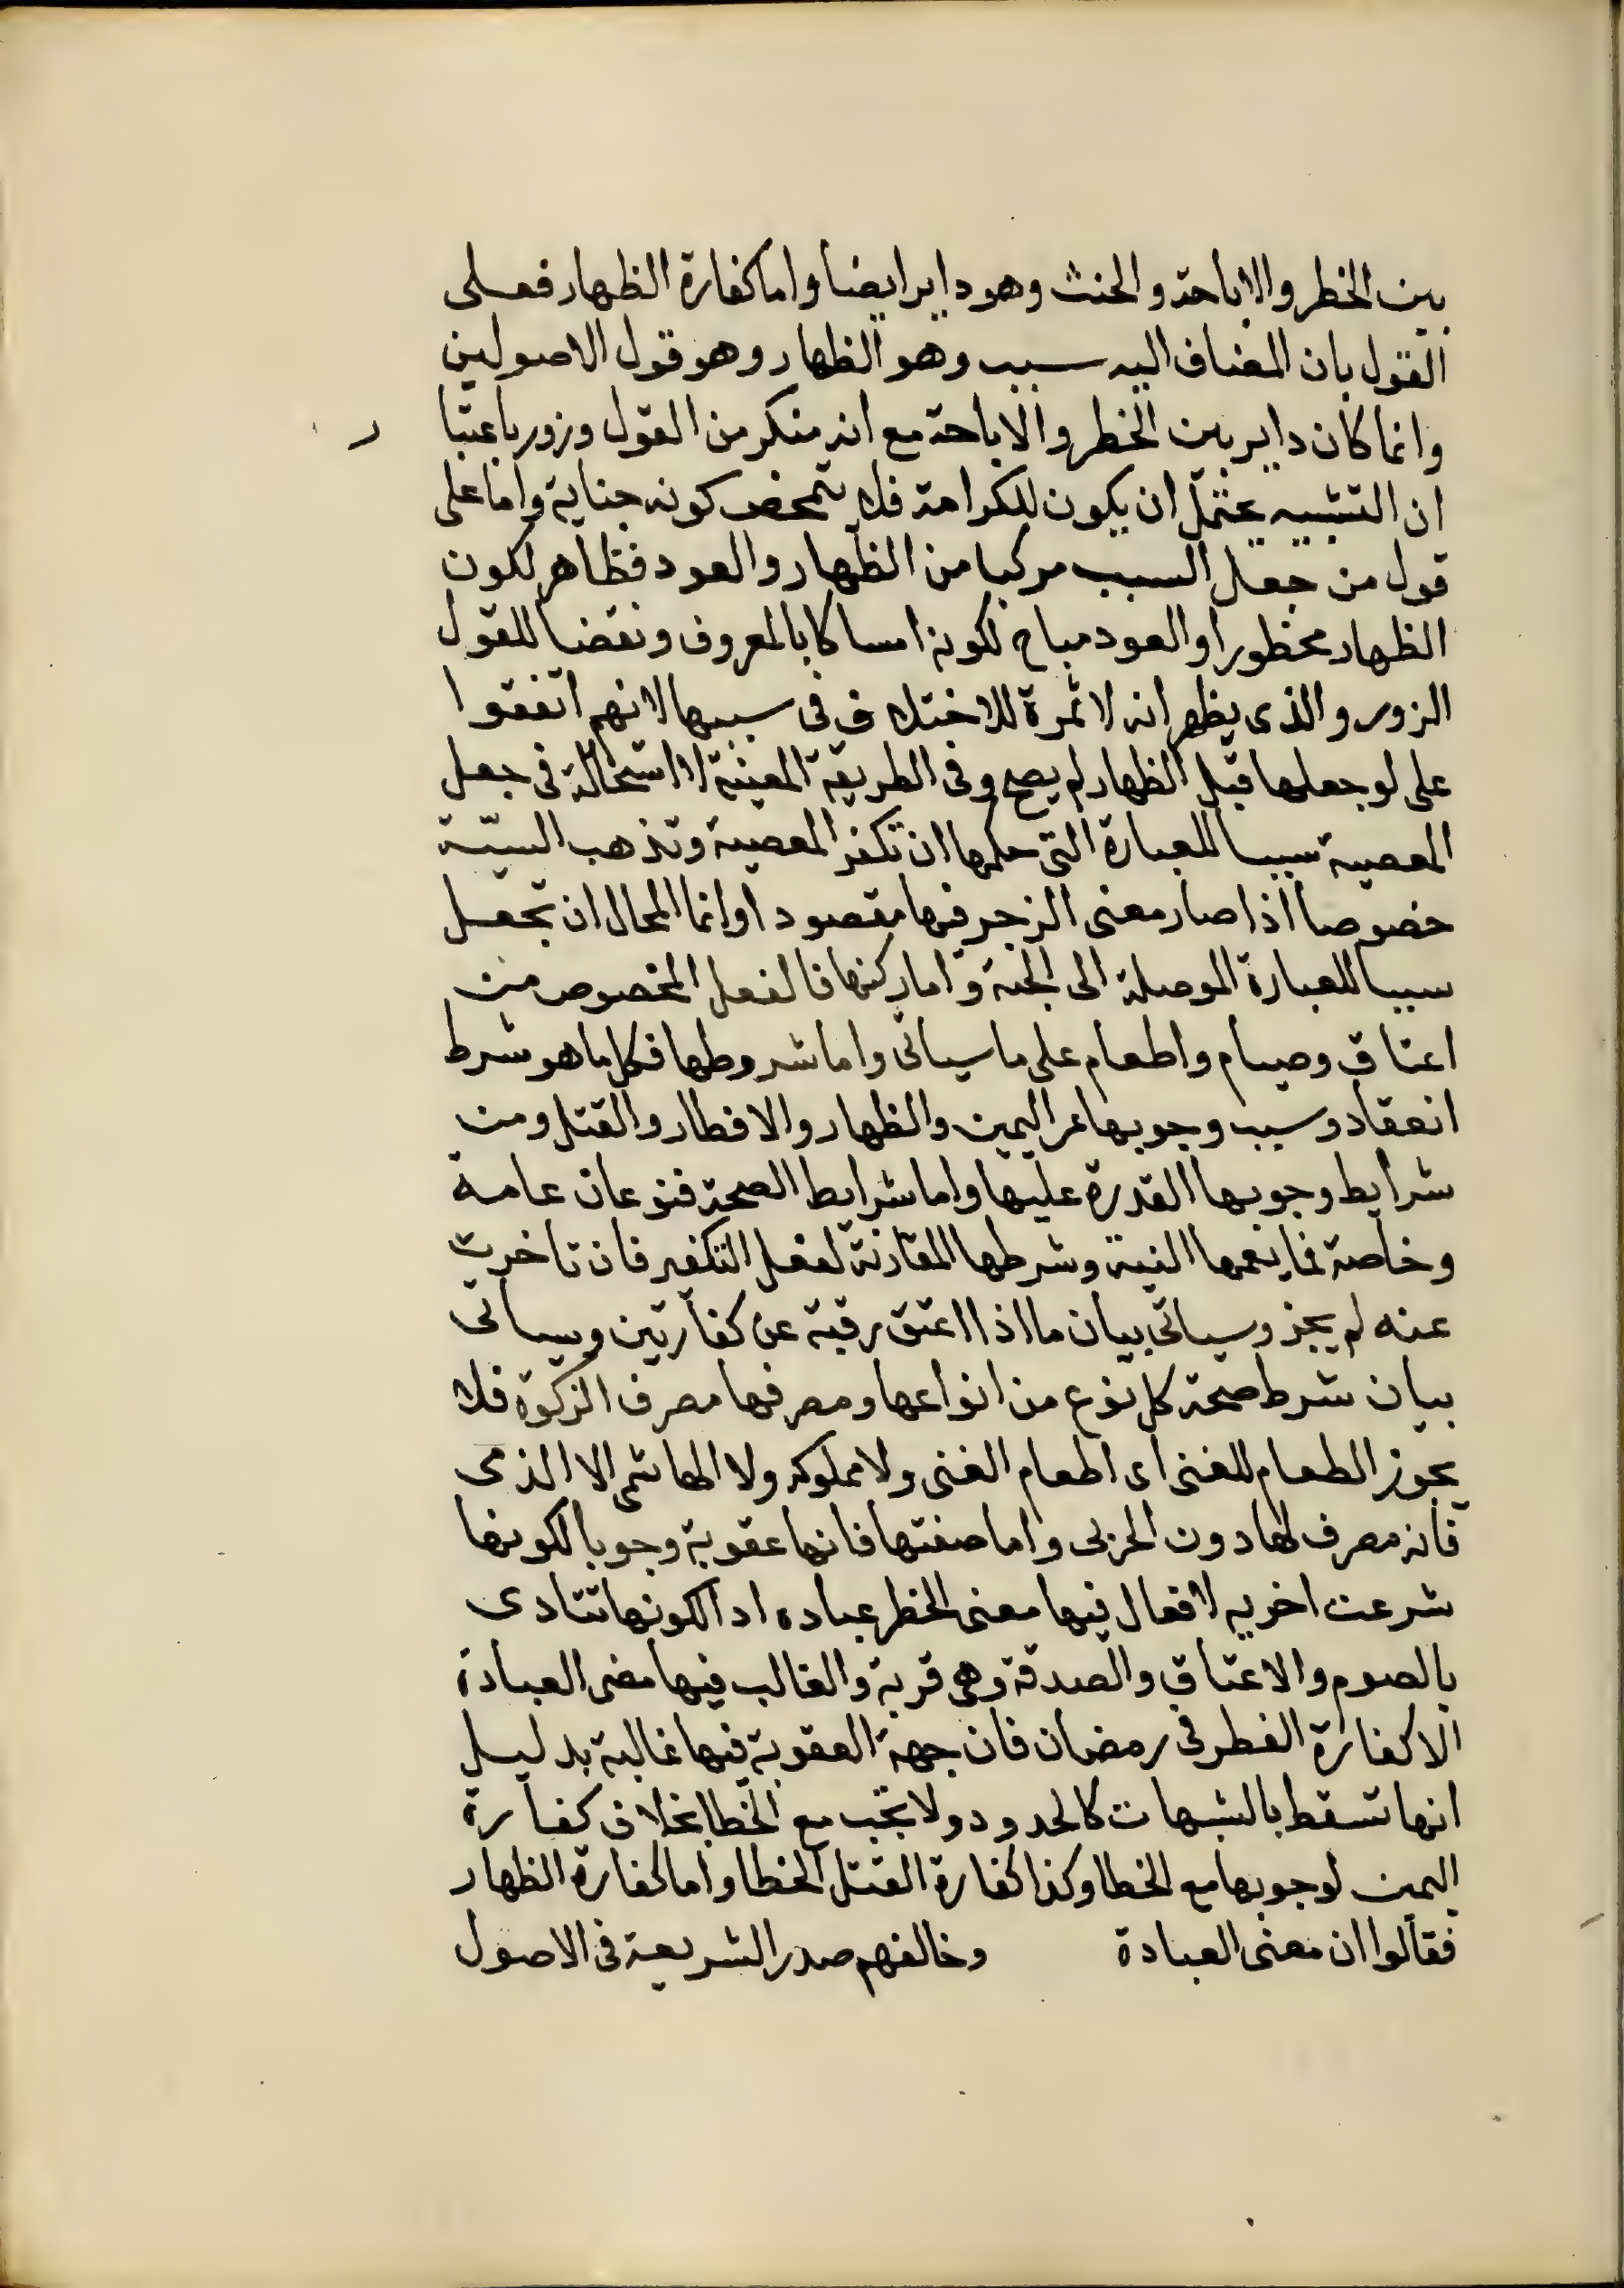 بين الخطر والاباحة والحنث وهو داير ايضا واما كفارة الظهار فعلى
القول بان المضاف اليه سبب وهو الظهار وهو قول الاصولين
وانما كان داير بين الخطر والاباحة مع انه منكر من القول وزور باعتبا ر
ان التشبيه يحتمل ان يكون للكرامة فلا يتمحض كونه جناية واما على
قول من جعل السبب مركبا من الظهار والعود فظاهر لكون
الظهار محظورا والعود مباح لكونه امساكا بالمعروف ونقضا للقول
الزور والذى يظهر انه لا ثمرة للاختلاف فى سببها لانهم اتفقوا
على لو جعلها قبل الظهار لم يصح وفى الطريقة المعينية لا استحالة فى جعل
المعصية سببا للعبارة التى حكمها ان تكفر المعصية وتذهب السيّة
خصوصا اذا صار معنى الزجر فيها مقصودا وانما المحال ان تجعل
سببا للعبارة الموصلة الى الجنة واما ركنها فالفعل المخصوص من
اعتاق وصيام واطعام على ما سياتى واما شروطها فكل ما هو شرط
انعقاد وسبب وجوبها عر اليمين والظهار والافطار والقتل ومن
شرايط وجوبها القدرة عليها واما شرايط الصحة فنوعان عامة
وخاصة فما يعمها النية وشرطها المقارنة لفعل التكفير فان تاخرت
عنه لم يجز وسياتى بيان ما اذا اعتق رقبة عن كفارتين وسياتى
بيان شرط صحة كل نوع من انواعها ومصرفها مصرف الزكوة فلا
يجوز الطعام للغنى اى اطعام الغنى ولا مملوكه ولا الهاشمى الا الذمى
فانه مصرف لها دون الحربى واما صفتها فانها عقوبة وجوبا لكونها
شرعت اخريه لافعال فيها معنى الخطر عباده ادا لكونها تتادى
بالصوم والاعتاق والصدقة وهى قربة والغالب فيها معنى العبادة
الا كفارة الفطر فى رمضان فان جهة العقوبة فيها غالبة بدليل
انها تسقط بالشبهات كالحدود ولا تجب مع الخطا بخلاف كفارة
اليمين لوجوبها مع الخطا وكذا كفارة القتل الخطا واما كفارة الظهار
فقالوا ان معنى العبادة وخالفهم صدر الشريعة فى الاصول